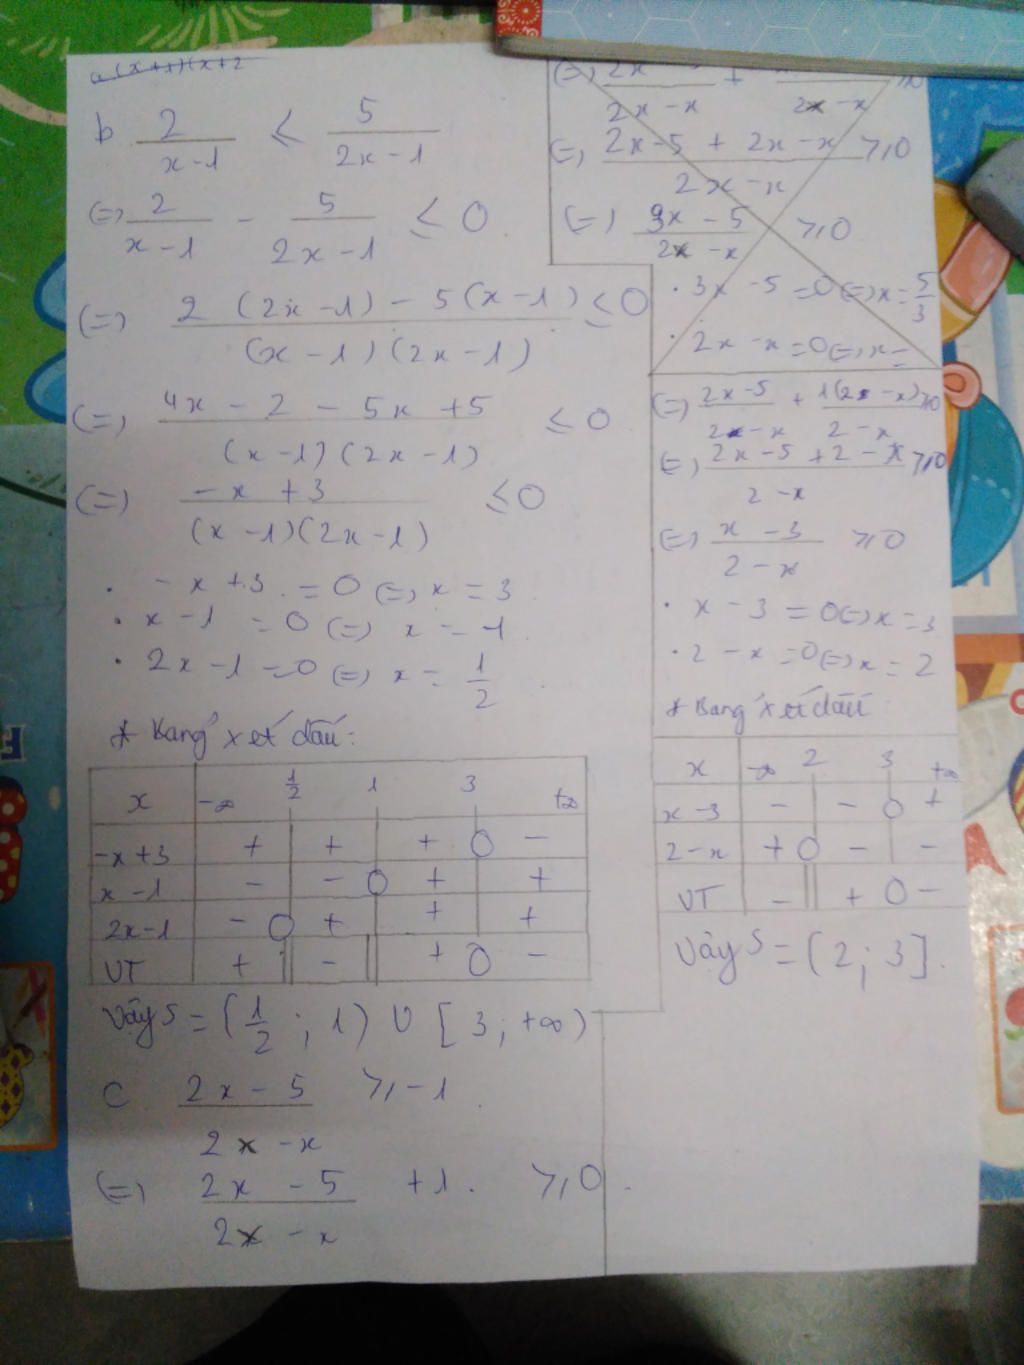 a (x+1)(x+2
b 2/(x-1) ≤ 5/(2x-1)
(=) 2/(x-1) - 5/(2x-1) ≤ 0
(=) (2(2x-1) - 5(x-1))/((x-1)(2x-1)) ≤ 0
(=) (4x - 2 - 5x + 5)/((x-1)(2x-1)) ≤ 0
(=) (-x + 3)/((x-1)(2x-1)) ≤ 0
. -x + 3 = 0 (=) x = 3
. x - 1 = 0 (=) x = 1
. 2x - 1 = 0 (=) x = 1/2
* Bảng xét dấu:
x -∞ 1/2 1 3 +∞
-x+3 + + + 0 -
x-1 - - 0 + +
2x-1 - 0 + + +
VT + || - || + 0 -
Vậy S = (1/2; 1) U [3; +∞)
C (2x-5)/(2x-x) ≥ -1
(=) (2x-5)/(2x-x) + 1. ≥ 0.
(=) (2x-5 + 2x-x)/(2x-x) ≥ 0
(=) (3x-5)/(2x-x) ≥ 0
. 3x-5 = 0 (=) x = 5/3
. 2x-x = 0 (=) x =
(=) (2x-5)/(2x-x) + 1(2x-x)/(2-x) ≥ 0
(=) (2x-5+2-x)/(2-x) ≥ 0
(=) (x-3)/(2-x) ≥ 0
. x-3 = 0 (=) x = 3
. 2-x = 0 (=) x = 2
* Bảng xét dấu
x -∞ 2 3 +∞
x-3 - - 0 +
2-x + 0 - -
VT - || + 0 -
Vậy S = (2; 3].